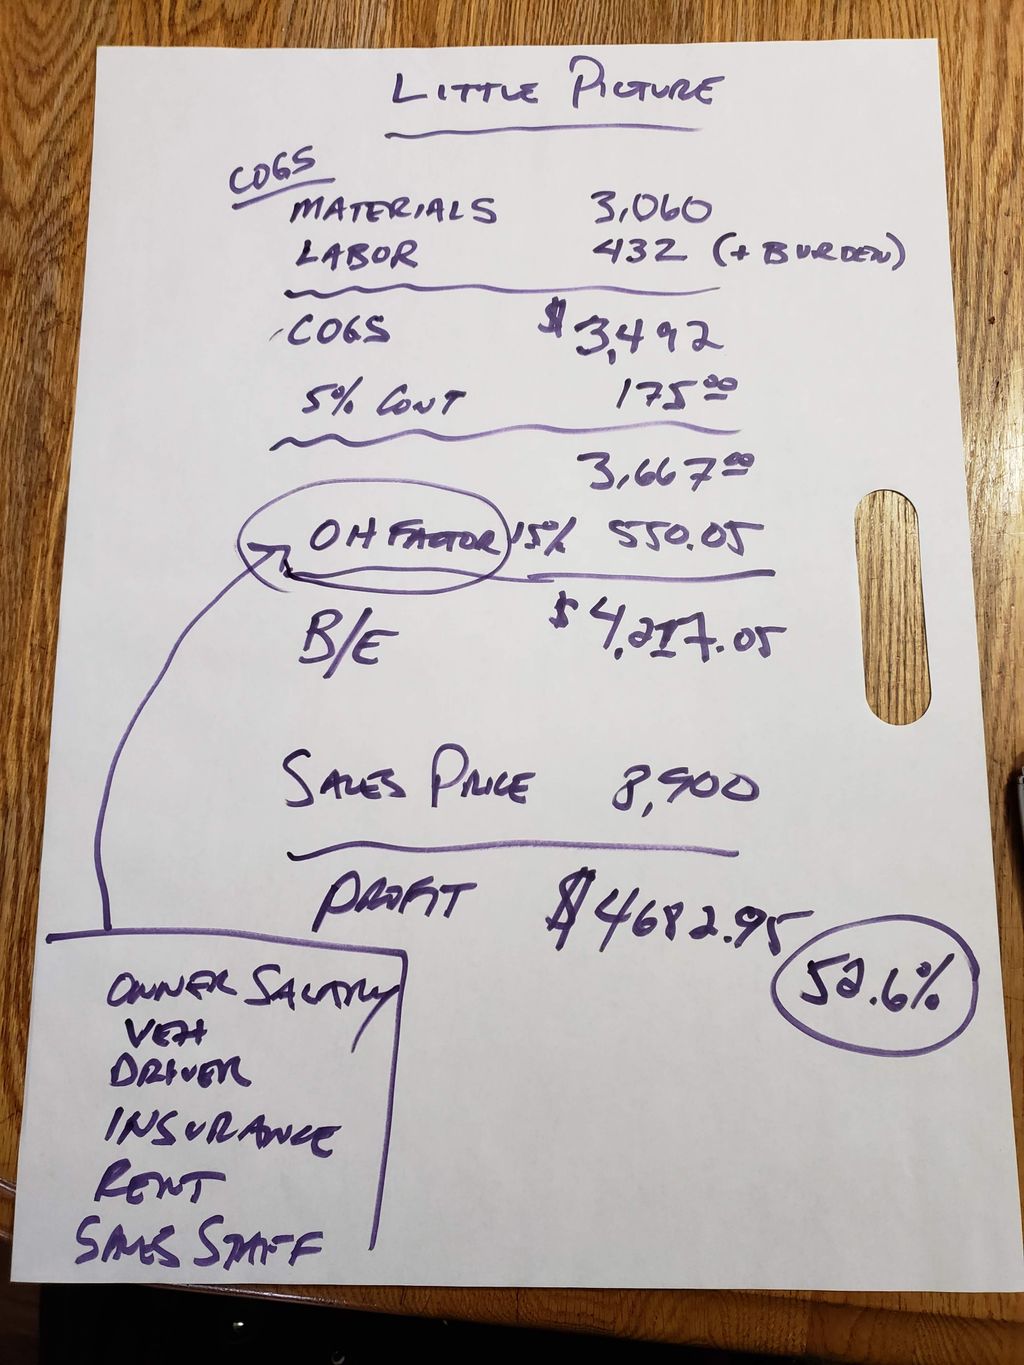 LITTLE PICTURE
COGS
MATERIALS 3,060
LABOR 432 (+ BURDEN)
COGS $3,492
5% CONT 175.00
3,667.00
OH FACTOR 15% 550.05
B/E $4,217.05
SALES PRICE 8,900
PROFIT $4682.95
52.6%
OWNER SALARY
VEH
DRIVER
INSURANCE
RENT
SALES STAFF